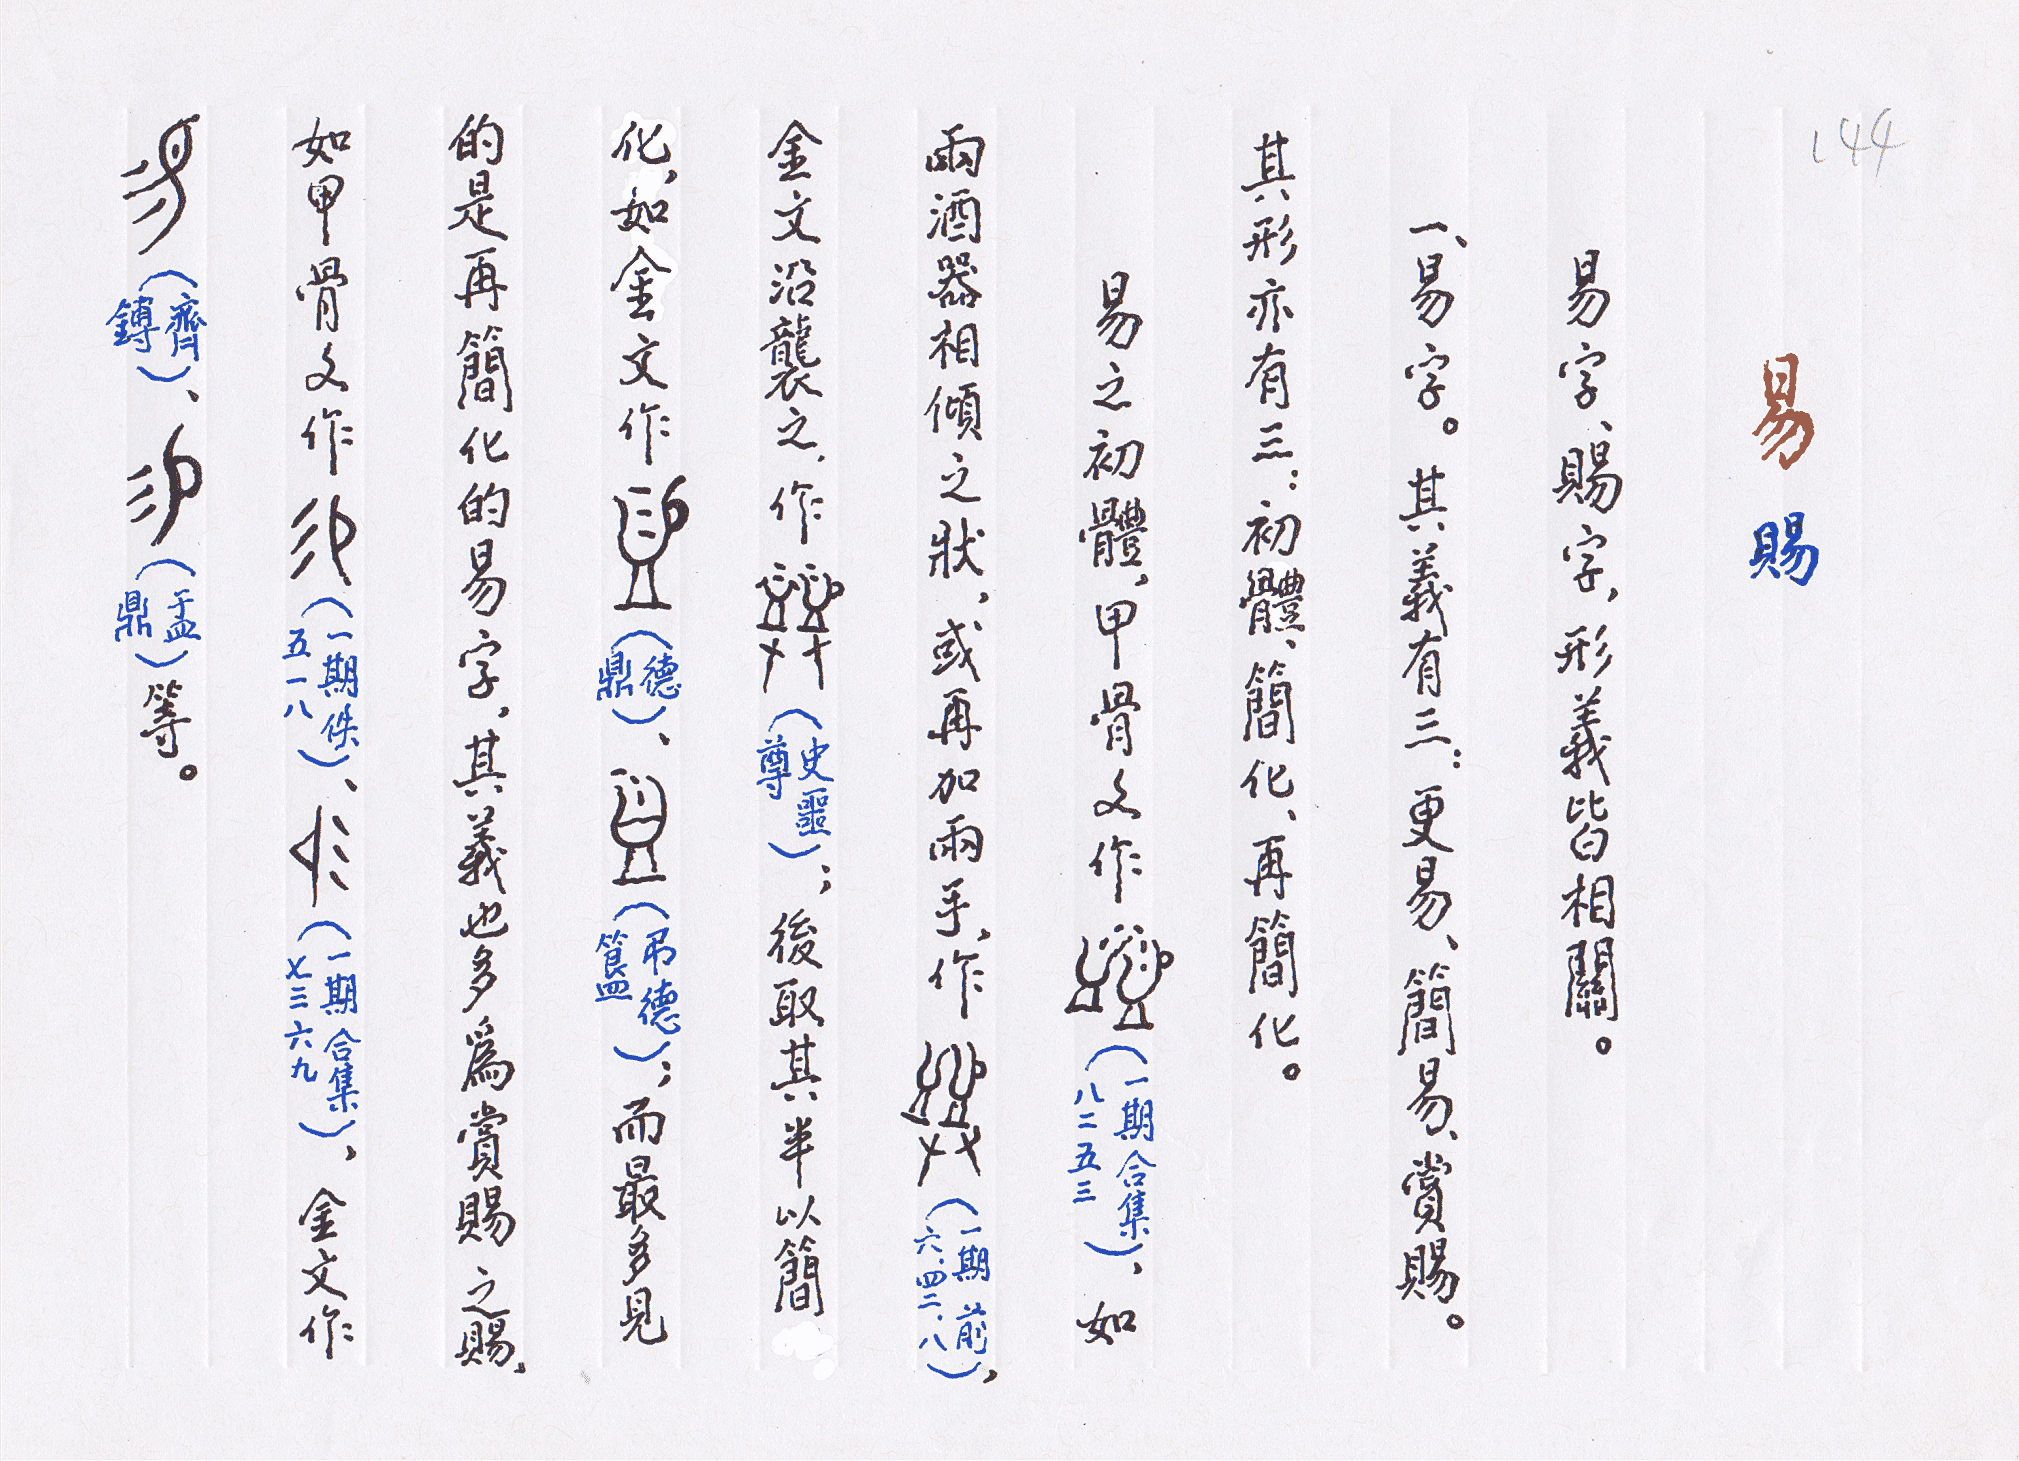 144
易 賜
易字、賜字，形義皆相關。
一、易字。其義有三：更易、簡易、賞賜。
其形亦有三：初體、簡化、再簡化。
易之初體，甲骨文作（一期合集八二五三），如
兩酒器相傾之狀，或再加兩手，作（一期前六.四二.八），
金文沿襲之，作（史噩尊）；後取其半以簡
化，如金文作（德鼎）、（弔德簋）；而最多見
的是再簡化的易字，其義也多為賞賜之賜，
如甲骨文作（一期佚五一八）、（一期合集七三六九），金文作
（齊鎛）、（盂鼎）等。